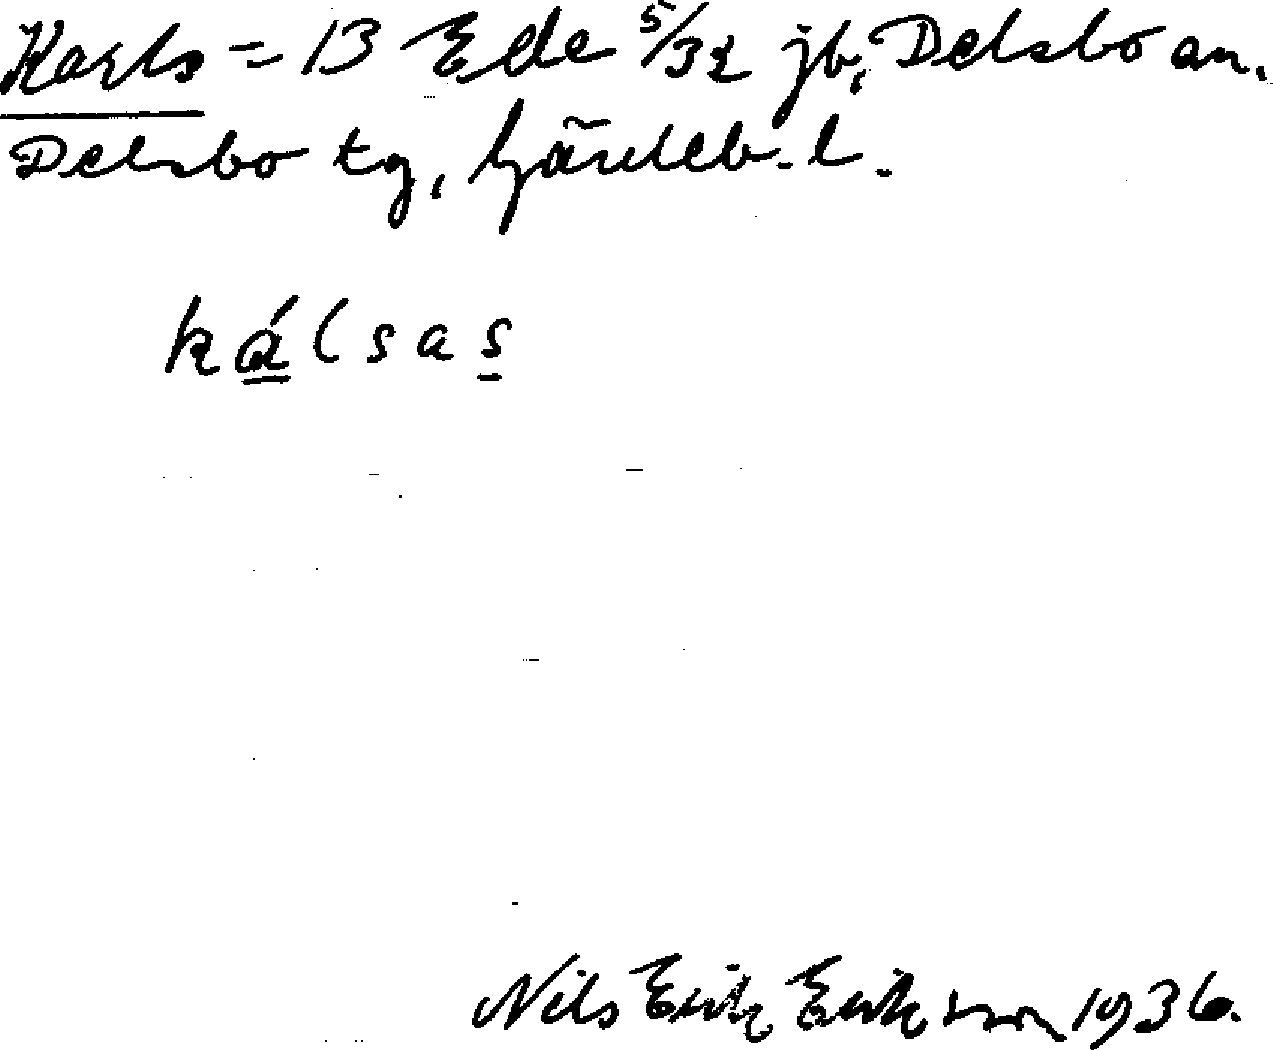 Karls = 13 Ede 5/32 jb, Delsbo an.
Delsbo tg, Gävleb. l.
kálsas
Nils Erik Eriksson 1936.